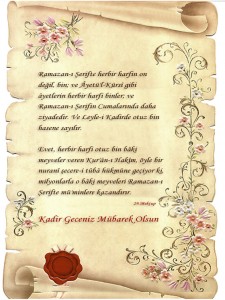 Ramazan-ı Şerifte herbir harfin on
değil, bin; ve Âyetü'l-Kürsi gibi
âyetlerin herbir harfi binler; ve
Ramazan-ı Şerifin Cumalarında daha
ziyadedir. Ve Leyle-i Kadirde otuz bin
hasene sayılır.
Evet, herbir harfi otuz bin bâki
meyveler veren Kur'ân-ı Hakîm, öyle bir
nurani şecere-i tûbâ hükmüne geçiyor ki,
milyonlarla o bâki meyveleri Ramazan-ı
Şerifte mü'minlere kazandırır.
29.Mektup
Kadir Geceniz Mübarek Olsun